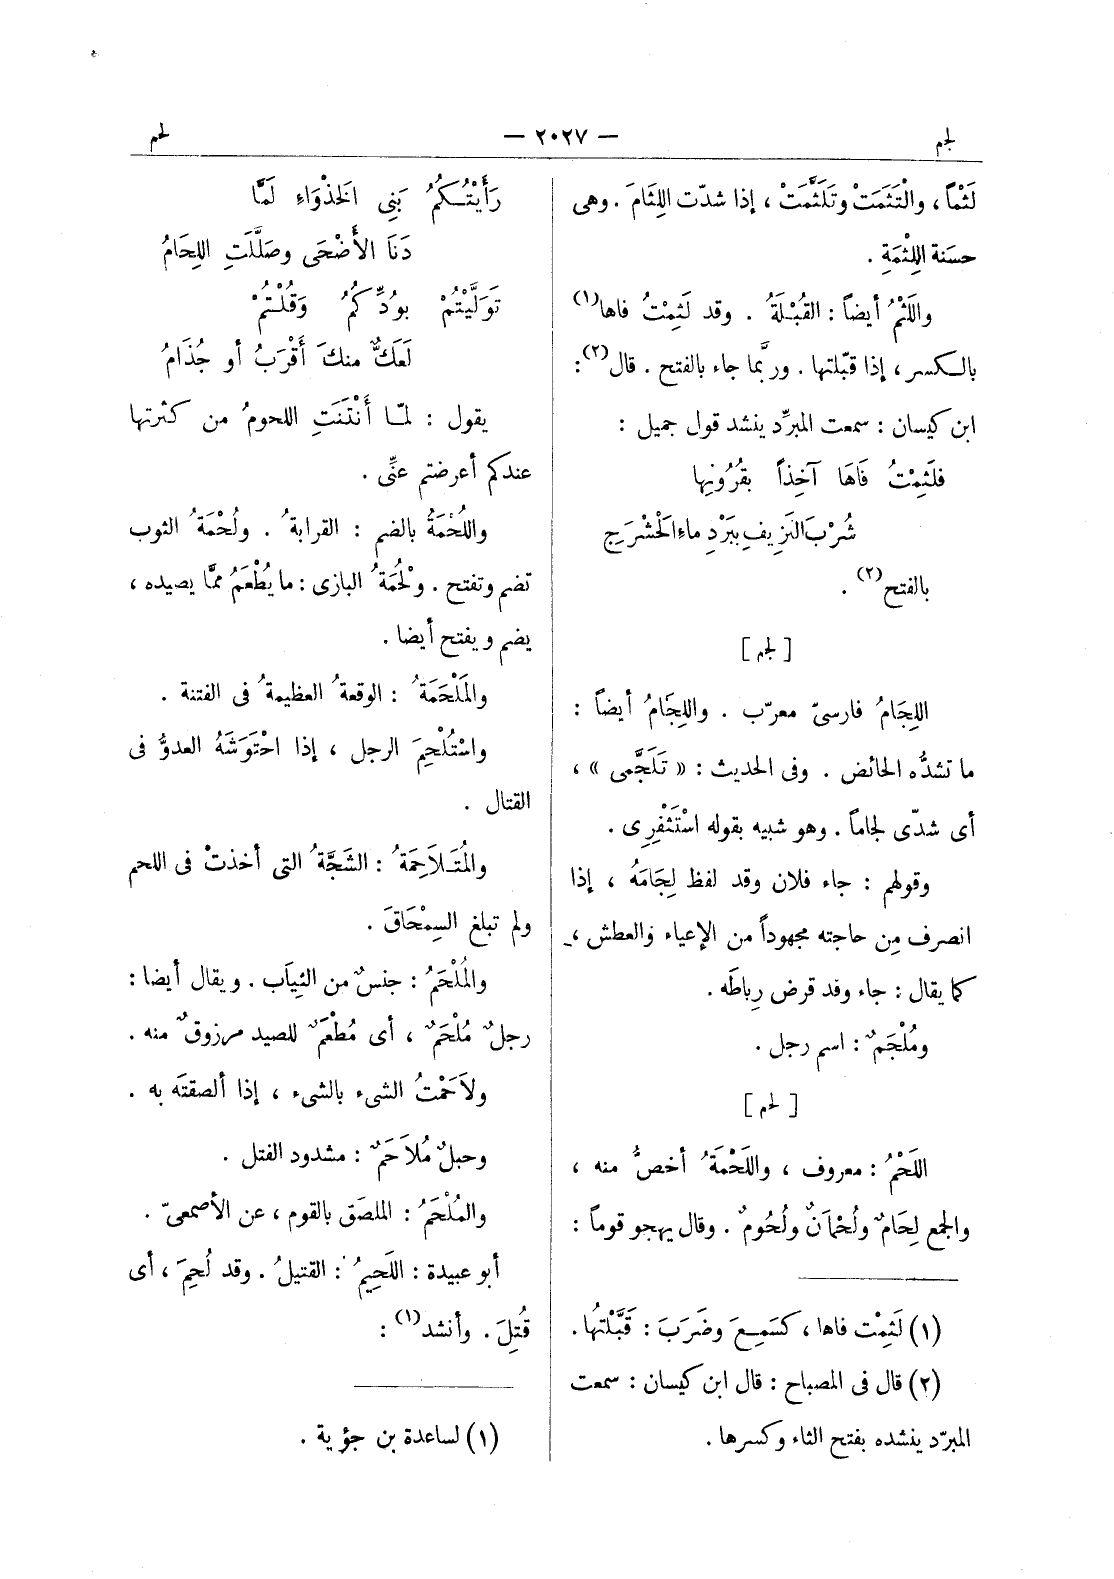 لجم
— ٢٠٢٧ —
لحم
لَثْماً ، والْتَثَمَتْ وتَلَثَّمَتْ ، إذا شدّت اللِثَامَ . وهى
حسَنة اللِثْمَةِ .
واللَثْمُ أيضاً : القُبْلَةُ . وقد لَثِمْتُ فاها(١)
بالكسر ، إذا قبّلتها . وربَّما جاء بالفتح . قال(٢) :
ابن كيسان : سمعت المبرِّد ينشد قول جميل :
فلَثِمْتُ فَاهَا آخِذاً بقُرُونِها
شُرْبَ النَزِيفِ بِبَرْدِ ماءِ الحَشْرَجِ
بالفتح(٢) .
[ لجم ]
اللِجَامُ فارسىّ معرّب . واللِجَامُ أيضاً :
ما تشدُّه الحائض . وفى الحديث : « تَلَجَّمى » ،
أى شدّى لجاماً . وهو شبيه بقوله اسْتَثْفِرِى .
وقولهم : جاء فلان وقد لفظ لِجَامَهُ ، إذا
انصرف مِن حاجته مجهوداً من الإعياء والعطش ،
كما يقال : جاء وفد قرض رِباطَه .
ومُلْجَمٌ : اسم رجل .
[ لحم ]
اللَحْمُ : معروف ، واللَحْمَةُ أخصُّ منه ،
والجمع لِحَامٌ ولُحْمَانٌ ولُحُومٌ . وقال يهجو قوماً :
(١) لَثِمْت فاها ، كسَمِعَ وضَرَبَ : قَبَّلْتُها .
(٢) قال فى المصباح : قال ابن كيسان : سمعت
المبرّد ينشده بفتح الثاء وكسرها .
رَأَيْتُكُمُ بَنِى الخَذْوَاءِ لَمَّا
دَنَا الأَضْحَى وصَلَّلَتِ اللِحَامُ
تَوَلَّيْتُمْ بوُدِّكُمُ وَقُلْتُمْ
لَعَكٌّ منكَ أَقْرَبُ أو جُذَامُ
يقول : لمّا أَنْتَنَتِ اللحومُ من كثرتها
عندكم أعرضتم عنِّى .
واللُحْمَةُ بالضم : القرابةُ . ولُحْمَةُ الثوب
تضم وتفتح . ولُحْمَةُ البازى : ما يُطْعَمُ ممَّا يصيده ،
يضم ويفتح أيضا .
والمَلْحَمَةُ : الوقعةُ العظيمةُ فى الفتنة .
واسْتُلْحِمَ الرجل ، إذا احْتَوَشَهُ العدوُّ فى
القتال .
والمُتَلَاحِمَةُ : الشَجَّةُ التى أخذتْ فى اللحم
ولم تبلغ السِمْحَاقَ .
والمُلْحَمُ : جنسٌ من الثِيَاب . ويقال أيضا :
رجلٌ مُلْحَمٌ ، أى مُطْعَمٌ للصيد مرزوقٌ منه .
ولاَحَمْتُ الشىء بالشىء ، إذا ألصقتَه به .
وحبلٌ مُلاَحَمٌ : مشدود الفتل .
والمُلْحَمُ : الملصَق بالقوم ، عن الأصمعىّ .
أبو عبيدة : اللَحِيمُ : القتيلُ . وقد لُحِمَ ، أى
قُتِلَ . وأنشد(١) :
(١) لساعدة بن جؤية .